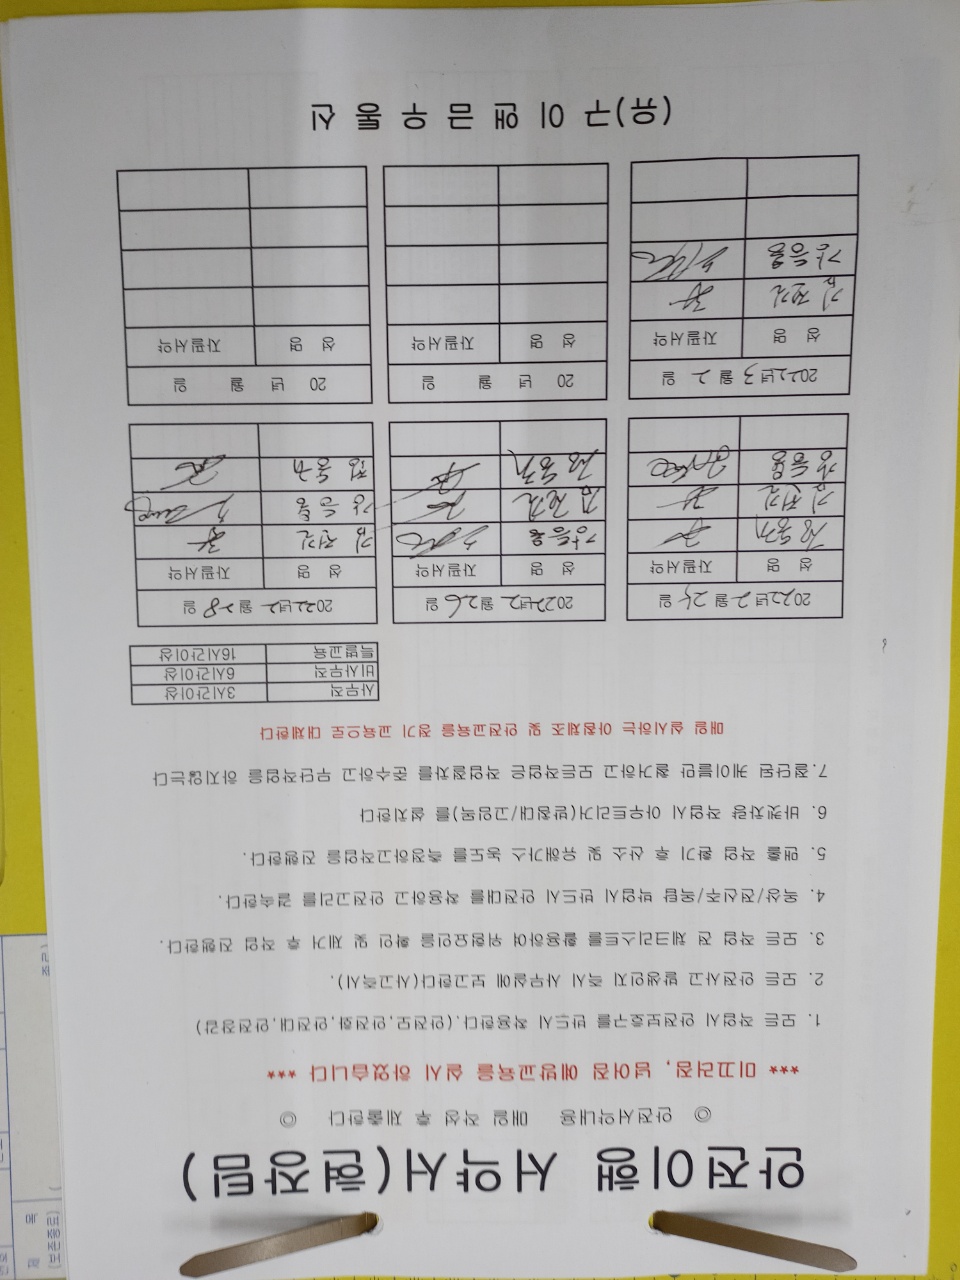 안전이행 서약서(현장팀)
◎ 안전서약내용 매일 작성 후 제출한다 ◎
*** 미끄러짐, 넘어짐 예방교육을 실시 하였습니다 ***
1. 모든 작업시 안전보호구를 반드시 착용한다.(안전모,안전화,안전대,안전장갑)
2. 모든 안전사고 발생인지 즉시 사무실에 보고한다(사고즉시).
3. 모든 작업 전 체크리스트를 활용하여 위험요인을 확인 및 제거 후 작업 진행한다.
4. 옥상/전신주/옥탑 작업시 반드시 안전대를 착용하고 안전고리를 결속한다.
5. 맨홀 작업 환기 후 산소 및 유해가스 농도를 측정하고작업을 진행한다.
6. 바켓차량 작업시 아우트리거(받침대/고임목)를 설치한다
7.절단된 케이블만 철거하고 모든작업은 작업절차를 준수하고 무단작업을 하지않는다
매일 실시하는 아침체조 및 안전교육을 정기 교육으로 대체한다
사무직 3시간이상
비사무직 6시간이상
특별교육 16시간이상
2022년 2월 25일
성 명 자필서약
김전진
강등용
2022년 2월 26일
성 명 자필서약
강등용
김전진
2022년 2월 28일
성 명 자필서약
김전진
강등용
2022년 3월 2일
성 명 자필서약
김전진
강등용
20 년 월 일
성 명 자필서약
20 년 월 일
성 명 자필서약
(유)구이앤금우통신